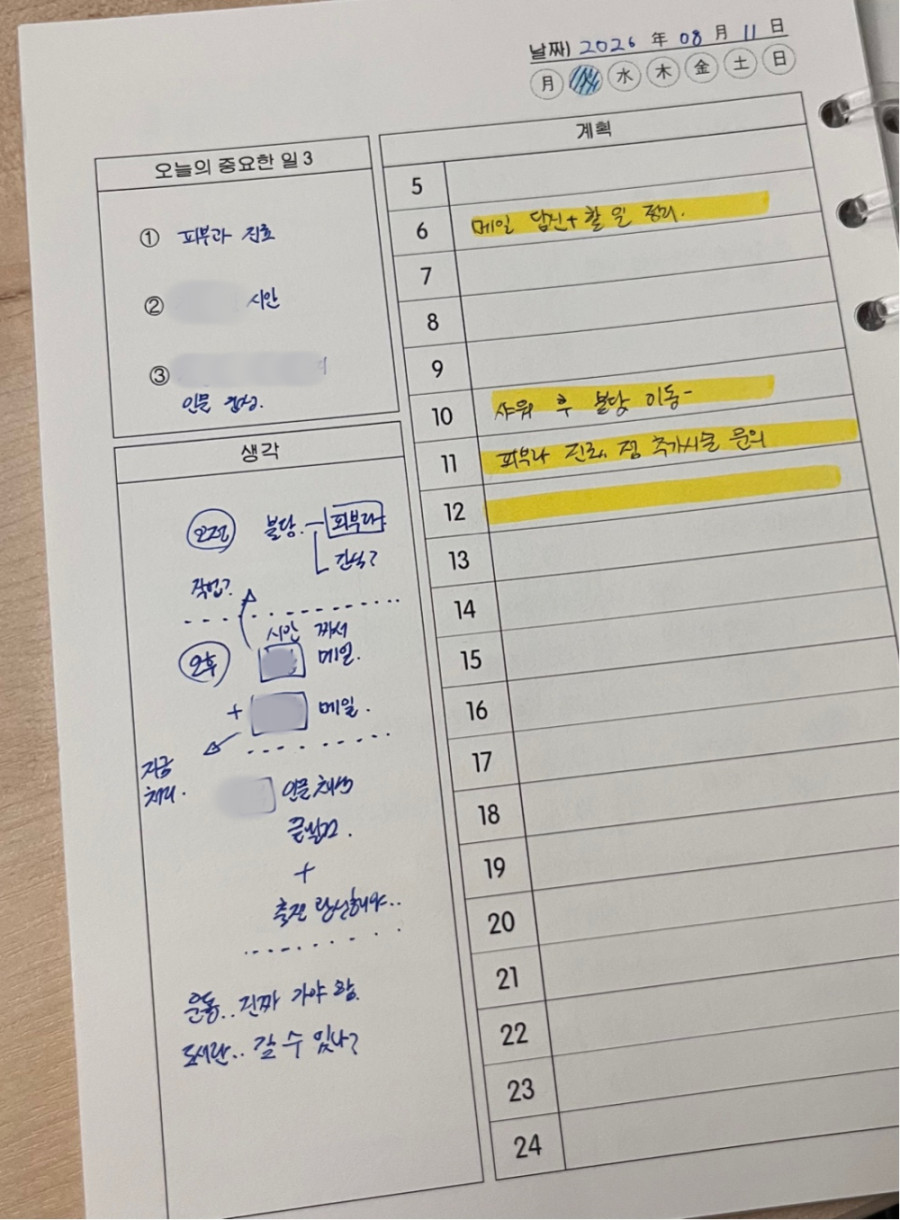 날짜| 2026 年 08 月 11 日
月 水 木 金 土 日
오늘의 중요한 일 3
① 피부과 진료
② 시안
③
인물
생각
오전 불당. 피부과
간식?
작업?
시안 짜서
오후 메일.
+ 메일.
지금
처리.
인물
+
출전
운동.. 진짜 가야 함.
도서관.. 갈 수 있나?
계획
5
6 메일 답신+ 할 일 정리.
7
8
9
10 샤워 후 불당 이동-
11 피부과 진료, 점 추가시술 문의
12
13
14
15
16
17
18
19
20
21
22
23
24